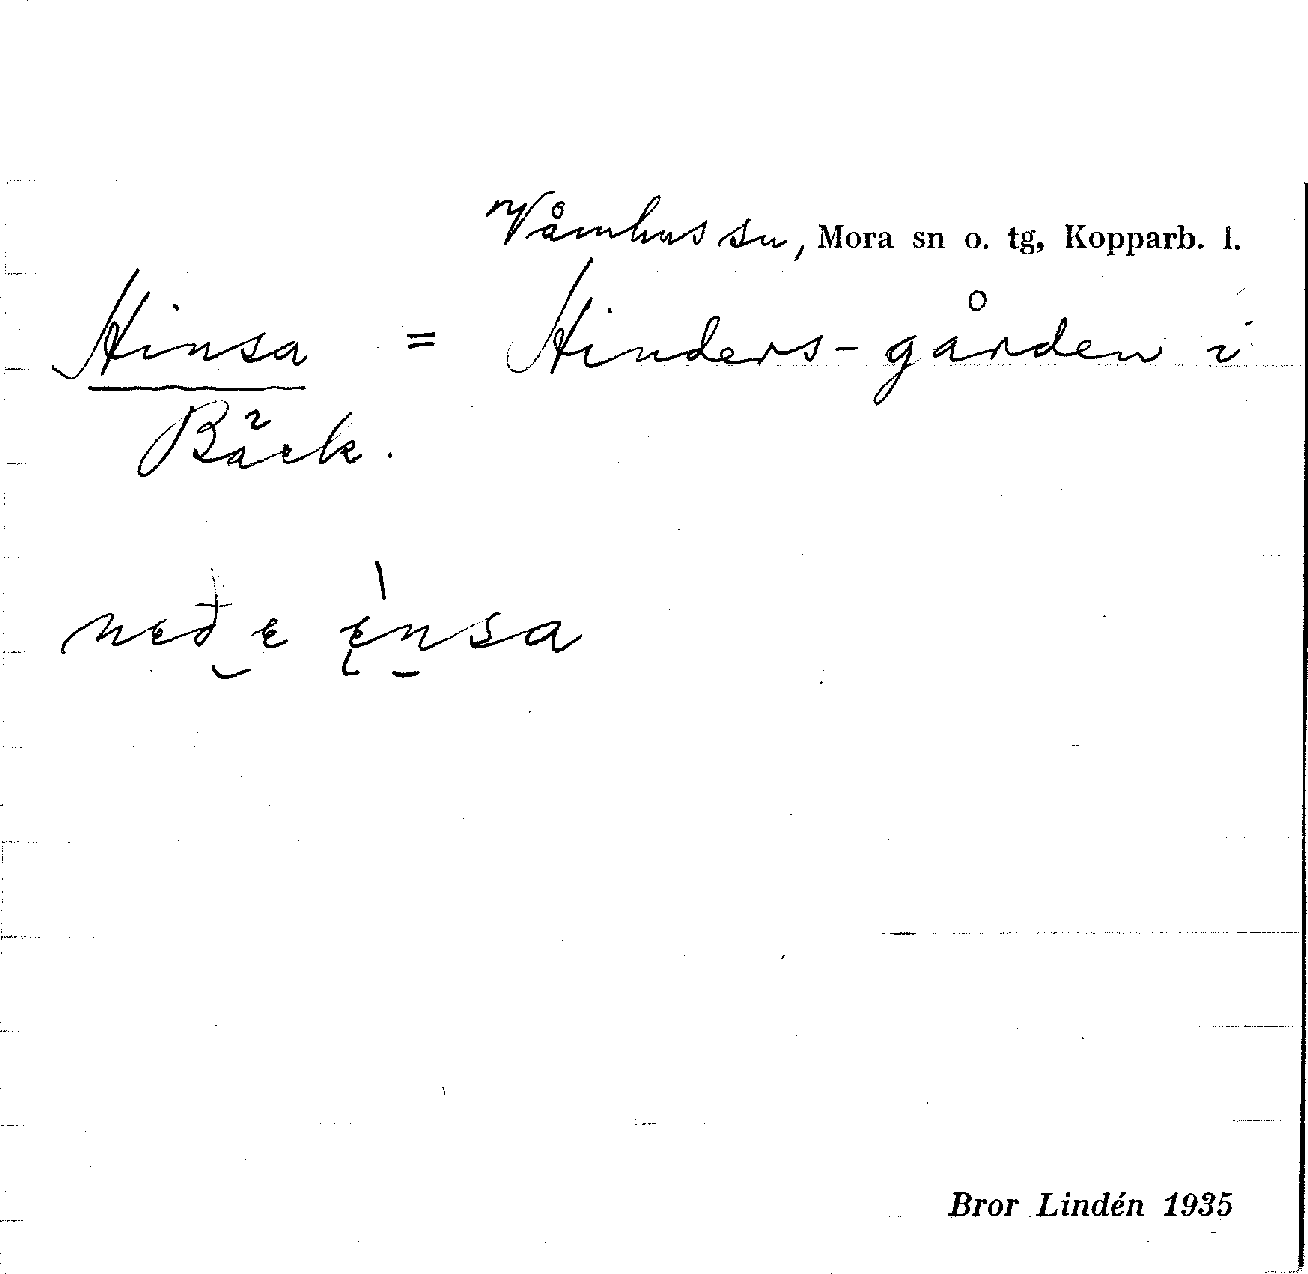 Våmhus sn, Mora sn o. tg, Kopparb. l.
Hinsa = Hinders-gården i
Bäck.
neđ e ènsa
Bror Lindén 1935